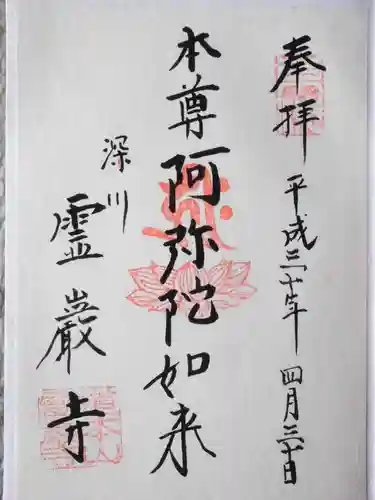 奉拝
平成三十年
四月三十日
本尊阿弥陀如来
深川
霊巌寺